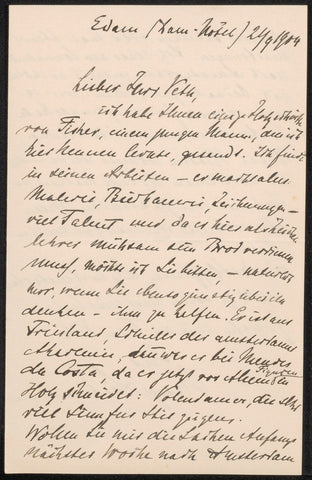 Edam (Dam-Hôtel) 21/9 1904
Lieber Herr Veth,
ich habe Ihnen einige Holzschnitte
von Fisher, einem jungen Mann, den ich
hier kennen lernte, gesandt. Ich finde
in seinen Arbeiten – er macht alles
Malerei, Bildhauerei, Zeichnungen –
viel Talent und da er hier als Zeichen
lehrer mühsam sein Brod verdienen
muss, möchte ich Sie bitten, – natürlich
nur, wenn Sie ebenso günstig über ihn
denken – ihm zu helfen. Er ist aus
Friesland, Schüler der amsterdamer
Academie, dann war er bei Mendes
da Costa, da er jetzt vor allem in
Figuren
Holz schneidet: Volendamer, die
viel Sinn für Stil zeigen.
Wollen Sie mir die Sachen Anfangs
nächster Woche nach Amsterdam